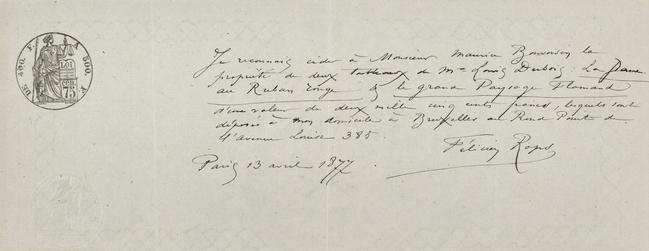 DE 400. F. A 500. F.
LOI
CEN.
75
Je reconnais céder à Monsieur Maurice Bonvoisin la
propriété de deux tableaux de Mr Louis Dubois : La Dame
au Ruban rouge & le grand Paysage Flamand
d'une valeur de deux mille cinq cents francs, lesquels sont
déposés à mon domicile à Bruxelles au Rond Point de
l'Avenue Louise 385.
Félicien Rops
Paris 13 avril 1877